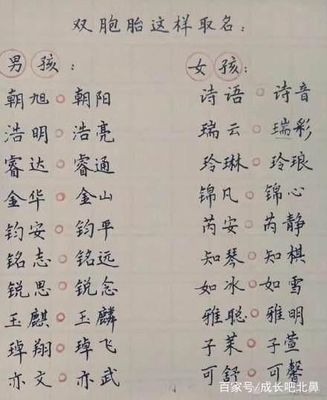 双胞胎这样取名：
男孩：
朝旭 朝阳
浩明 浩亮
睿达 睿通
金华 金山
钧安 钧平
铭志 铭远
锐思 锐念
玉麒 玉麟
璋翔 璋飞
亦文 亦武
女孩：
诗语 诗音
瑞云 瑞彩
玲琳 玲琅
锦凡 锦心
芮安 芮静
知琴 知棋
如冰 如雪
雅聪 雅明
子茉 子萱
可舒 可馨
百家号/成长吧北鼻